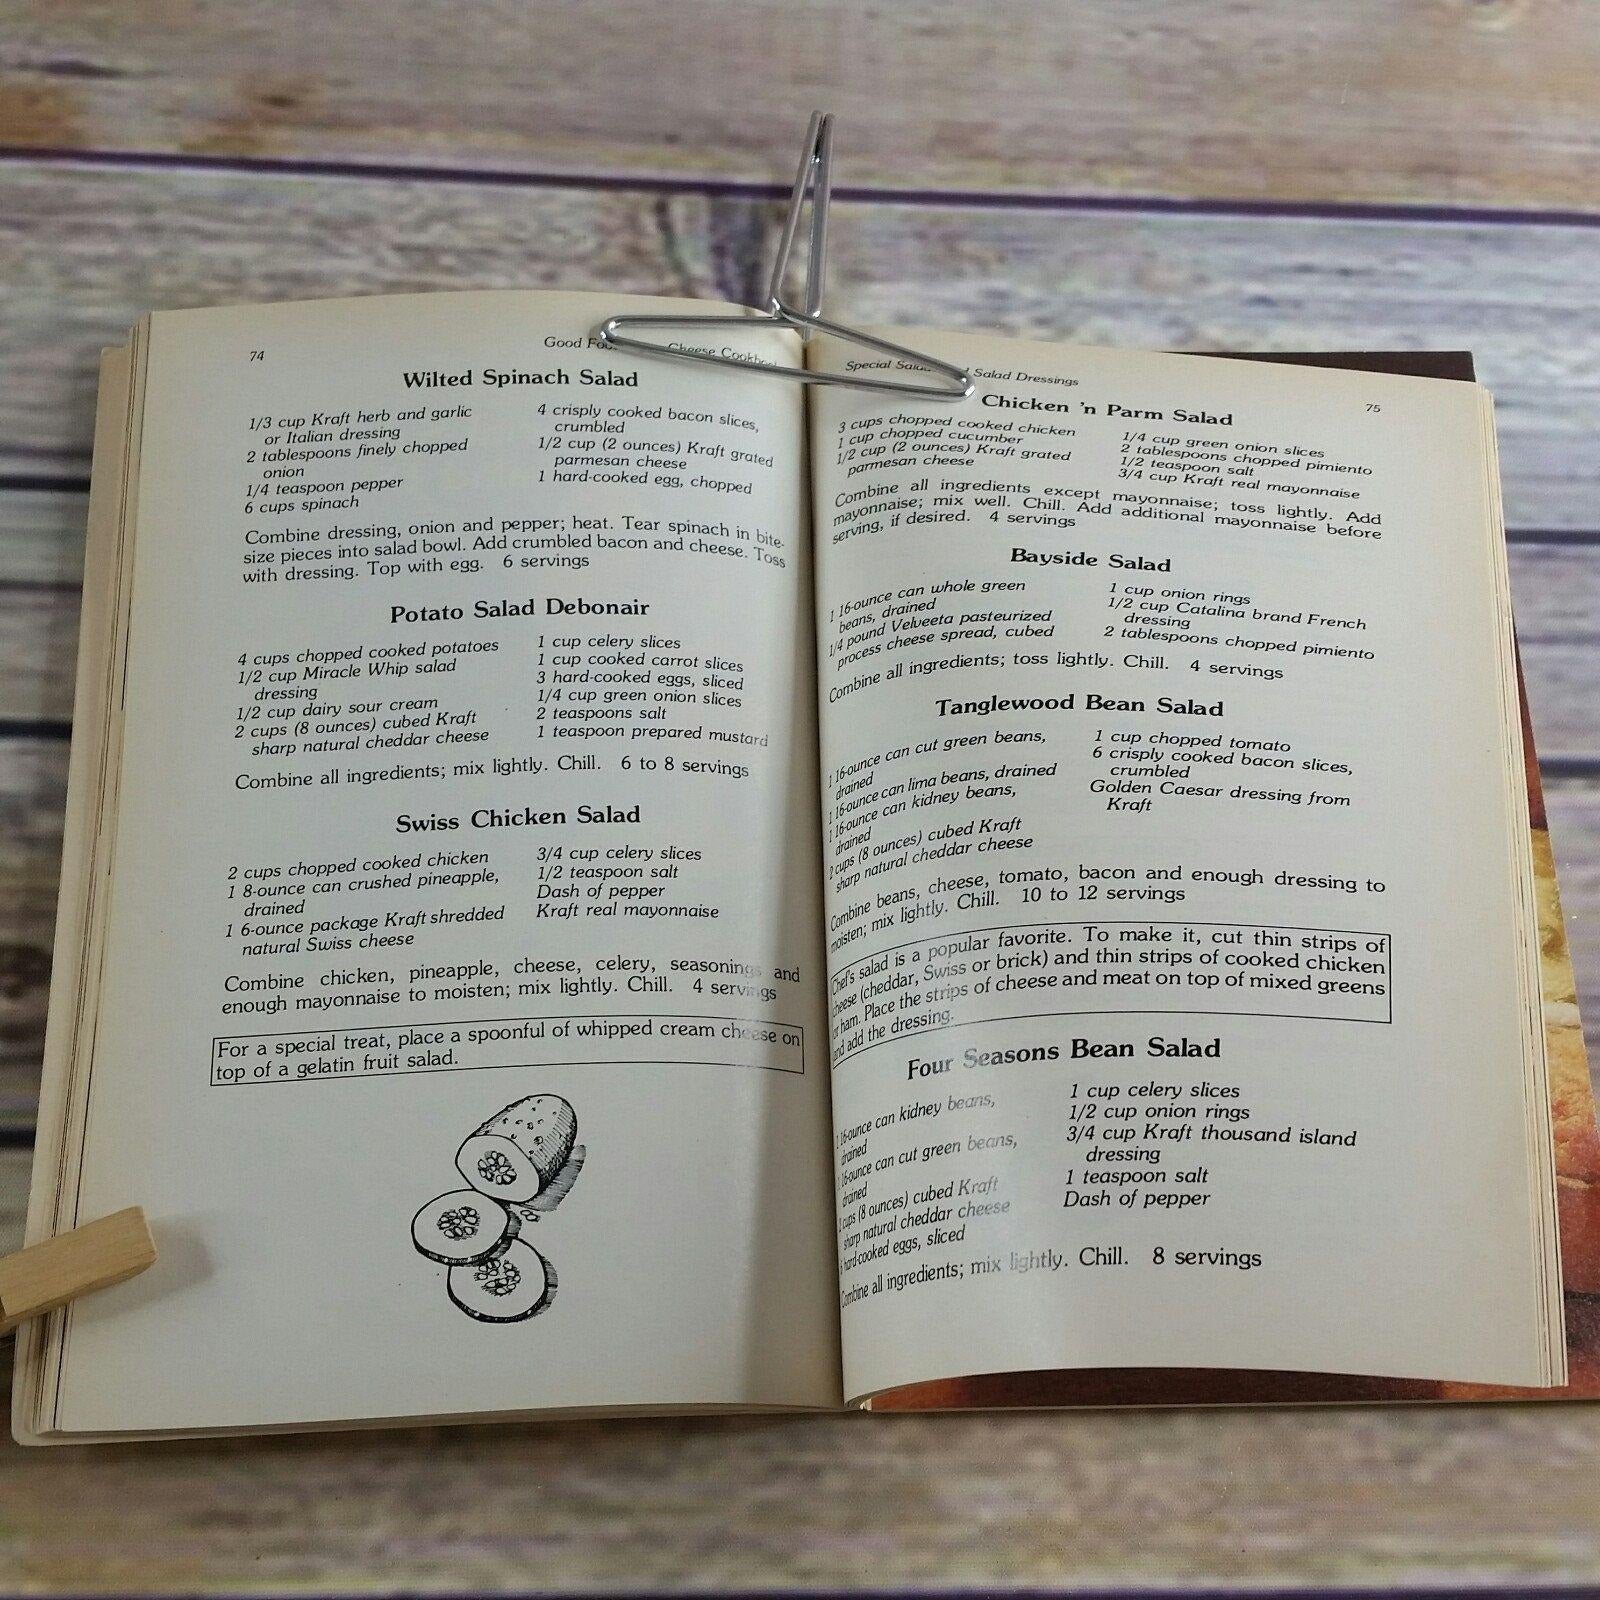 74
Good Foo Cheese Cookbook
Wilted Spinach Salad
1/3 cup Kraft herb and garlic
or Italian dressing
2 tablespoons finely chopped
onion
1/4 teaspoon pepper
6 cups spinach
4 crisply cooked bacon slices,
crumbled
1/2 cup (2 ounces) Kraft grated
parmesan cheese
1 hard-cooked egg, chopped
Combine dressing, onion and pepper; heat. Tear spinach in bite-
size pieces into salad bowl. Add crumbled bacon and cheese. Toss
with dressing. Top with egg. 6 servings
Potato Salad Debonair
4 cups chopped cooked potatoes
1/2 cup Miracle Whip salad
dressing
1/2 cup dairy sour cream
2 cups (8 ounces) cubed Kraft
sharp natural cheddar cheese
1 cup celery slices
1 cup cooked carrot slices
3 hard-cooked eggs, sliced
1/4 cup green onion slices
2 teaspoons salt
1 teaspoon prepared mustard
Combine all ingredients; mix lightly. Chill. 6 to 8 servings
Swiss Chicken Salad
2 cups chopped cooked chicken
1 8-ounce can crushed pineapple,
drained
1 6-ounce package Kraft shredded
natural Swiss cheese
3/4 cup celery slices
1/2 teaspoon salt
Dash of pepper
Kraft real mayonnaise
Combine chicken, pineapple, cheese, celery, seasonings and
enough mayonnaise to moisten; mix lightly. Chill. 4 servings
For a special treat, place a spoonful of whipped cream cheese on
top of a gelatin fruit salad.
Special Sala d Salad Dressings
75
Chicken 'n Parm Salad
3 cups chopped cooked chicken
1 cup chopped cucumber
1/2 cup (2 ounces) Kraft grated
parmesan cheese
1/4 cup green onion slices
2 tablespoons chopped pimiento
1/2 teaspoon salt
3/4 cup Kraft real mayonnaise
Combine all ingredients except mayonnaise; toss lightly. Add
mayonnaise; mix well. Chill. Add additional mayonnaise before
serving, if desired. 4 servings
Bayside Salad
1 16-ounce can whole green
beans, drained
1/4 pound Velveeta pasteurized
process cheese spread, cubed
1 cup onion rings
1/2 cup Catalina brand French
dressing
2 tablespoons chopped pimiento
Combine all ingredients; toss lightly. Chill. 4 servings
Tanglewood Bean Salad
1 16-ounce can cut green beans,
drained
1 16-ounce can lima beans, drained
1 16-ounce can kidney beans,
drained
2 cups (8 ounces) cubed Kraft
sharp natural cheddar cheese
1 cup chopped tomato
6 crisply cooked bacon slices,
crumbled
Golden Caesar dressing from
Kraft
Combine beans, cheese, tomato, bacon and enough dressing to
moisten; mix lightly. Chill. 10 to 12 servings
Chef's salad is a popular favorite. To make it, cut thin strips of
cheese (cheddar, Swiss or brick) and thin strips of cooked chicken
or ham. Place the strips of cheese and meat on top of mixed greens
and add the dressing.
Four Seasons Bean Salad
1 16-ounce can kidney beans,
drained
16-ounce can cut green beans,
drained
cups (8 ounces) cubed Kraft
sharp natural cheddar cheese
hard-cooked eggs, sliced
1 cup celery slices
1/2 cup onion rings
3/4 cup Kraft thousand island
dressing
1 teaspoon salt
Dash of pepper
Combine all ingredients; mix lightly. Chill. 8 servings